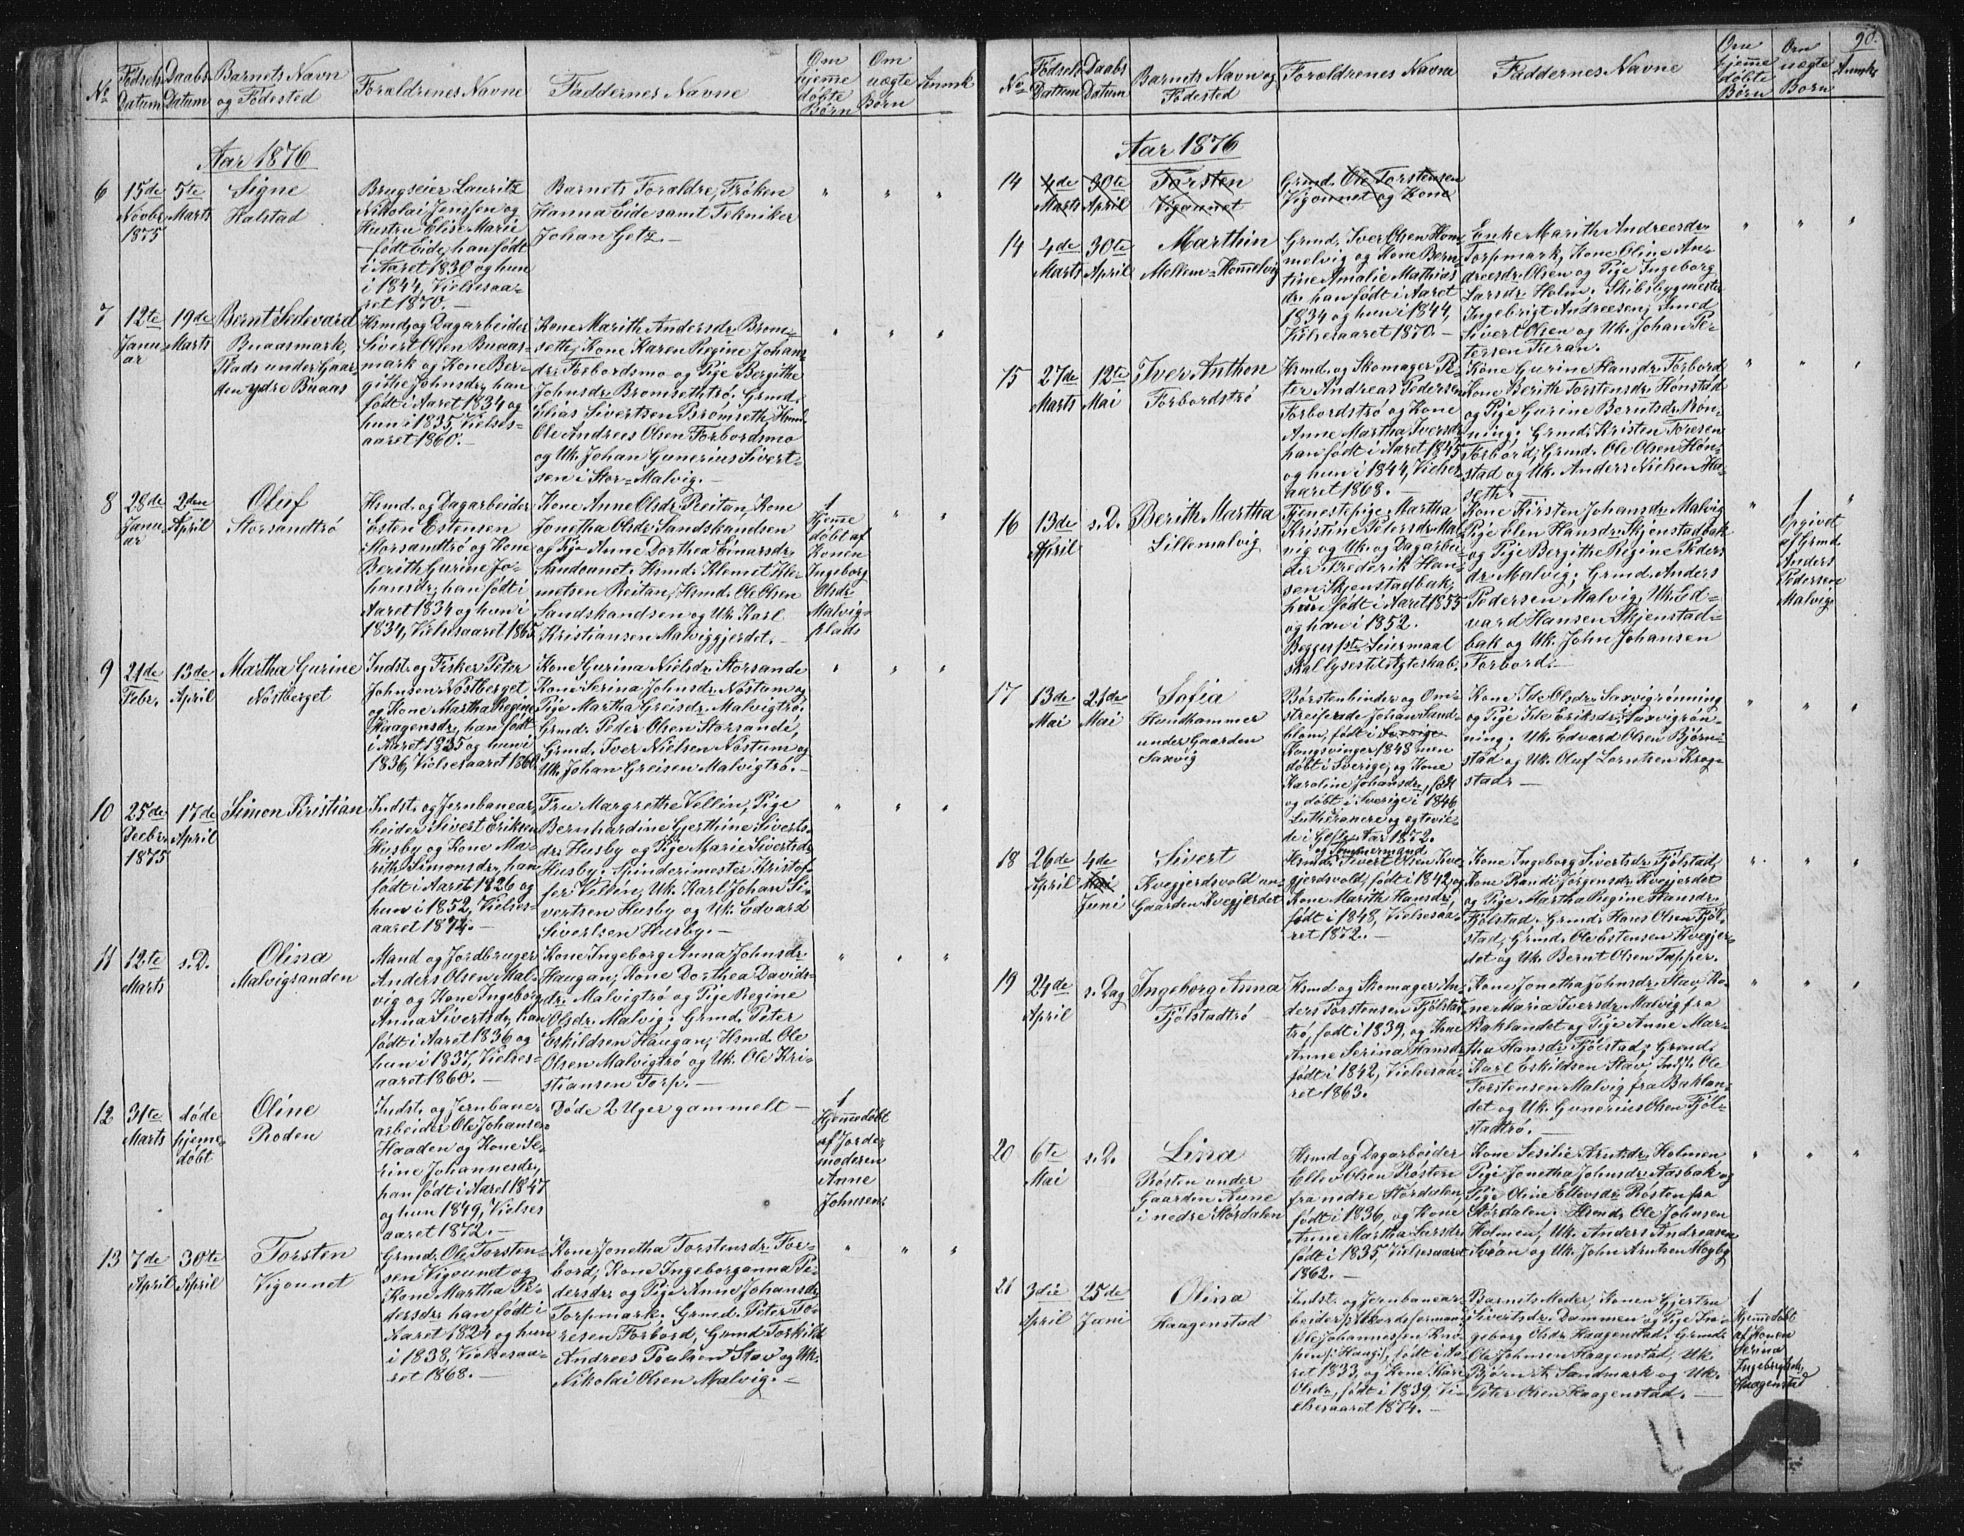 90.
No
Fødsels Datum
Daabs Datum
Barnets Navn og Fødested
Forældrenes Navne
Faddernes Navne
Om hjemme døbte Børn
Om uægte Børn
Anmk
Aar 1876
6
15de Novbr 1875
5te Marts
Signe
Halstad
Brugseier Lauritz
Nikolai Jenssen og
Hustru Elise Marie
født Eide, han født
i Aaret 1830 og hun
i 1844, Vielsesaa-
ret 1870.
Barnets Forældre, Frøken
Hanna Eide samt Tekniker
Johan Getz.
7
12te Januar
19de Marts
Bernt Sedevard
Buaasmark,
Plads under Gaar
den ydre Buaas
Hsmd. og Dagarbeider
Sivert Olsen Buaas-
mark og Kone Ber-
githe Johnsdr, han
født i Aaret 1834 og
hun i 1835, Vielses-
aaret 1860.
Kone Marith Andersdr. Brom-
seth, Kone Karen Regine Johans-
dr. Forbordsmo og Pige Bergithe
Johnsdr. Bromsethtrø. Grmd.
Elias Sivertsen Bromseth, Hsmd.
Ole Andreas Olsen Forbordsmo
og Uk. Johan Gunerius Sivert-
sen i Stor-Malvig.
8
28de Januar
2den April
Oluf
Storsandtrø
Hsmd. og Dagarbeider
Esten Estensen
Storsandtrø og Kone
Berith Gurine Jo-
hansdr, han født i
Aaret 1834 og hun i
1834, Vielsesaaret 1865
Kone Anne Olsdr. Reitan, Kone
Jonetha Olsdr. Sandskandsen
og Pige Anne Dorthea Einarsdr.
Hsmd. Klemet Kle-
metsen Reitan, Hsmd. Ole Olsen
Sandskandsen og Uk. Karl
Kristiansen Malviggjerdet.
1
Hjemme
døbt af
Konen
Ingeborg
Olsdr.
Malvig-
plads
9
21de Febr.
13de April
Martha Gurine
Nostberget
Indst. og Fisker Peter
Johnsen Nostberget
og Kone Martha Regine
Haagensdr, han født
i Aaret 1835 og hun i
1836, Vielsesaaret 1860
Kone Gurina Nielsdr. Storsande
Kone Serina Johnsdr. Nostum og
Pige Martha Greisdr. Malvigtrø.
Grmd. Peder Olsen Storsande,
Grmd. Iver Nielsen Nostum og
Uk. Johan Greisen Malvigtrø.
10
25de Decbr. 1875
17de April
Simon Kristian
Indst. og Jernbanear-
beider Sivert Eriksen
Husby og Kone Ma-
rith Simonsdr, han
født i Aaret 1826 og
hun i 1852, Vielses-
aaret 1874.
Fru Margrethe Vellin, Pige
Bernhardine Gjerthine Siverts-
dr. Husby og Pige Marie Sivertsdr
Husby; Spinderimester Kristof-
fer Vellin, Uk. Karl Johan Si-
vertsen Husby og Uk. Edvard
Sivertsen Husby.
11
12te Marts
s.D.
Olina
Malvigsanden
Mand og Jordbruger
Anders Olsen Mal-
vig og Kone Ingeborg
Anna Sivertsdr, han
født i Aaret 1836 og
hun i 1837, Vielses-
aaret 1860.
Kone Ingeborg Anna Johnsdr.
Haugan; Kone Dorthea Davids-
dr. Malvigtrø og Pige Regine
Olsdr. Malvig; Grmd. Peter
Eskildsen Haugan; Hsmd. Ole
Olsen Malvigtrø og Uk. Ole Kri-
stiansen Torp.
12
31te Marts
døde hjemedøbt
Oline
Roden
Indst. og Jernbane-
arbeider Ole Johansen
Haaden og Kone Se-
rine Johannesdr,
han født i Aaret 1847
og hun 1849, Vielses
aaret 1872.
Døde 2 Uger gammelt
1
Hjemmedøbt
af Jorde
moderen
Anne
Johnsen.
13
7de April
30te April
Torsten
Vigounet
Grmd. Ole Torsten-
sen Vigounet og
Kone Martha Pe-
dersdr, han født i
Aaret 1824 og hun
i 1838, Vielsesaa-
ret 1868.
Kone Jonetha Torstensdr. For-
bord; Kone Ingeborganna Pe-
dersdr. og Pige Anne Johansdr.
Torpmark. Grmd. Peter To-
resen Forbord, Grmd. Torkild
Andreas Poulsen Stav og Uk.
Nikolai Olsen Malvig.
No
Fødsels Datum
Daabs Datum
Barnets Navn og Fødested
Forældrenes Navne
Faddernes Navne
Om hjemme døbte Børn
Om uægte Børn
Anmk
Aar 1876
14
4de Marts
30te April
Torsten
Vigounet
Grmd. Ole Torstensen
Vigounet og Kone
14
4de Marts
30te April
Marthin
Mellem-Hommelvig
Grmd. Iver Olsen Hom-
melvig og Kone Bern-
tine Amalie Mathias
dr. han født i Aaret
1834 og hun i 1844,
Vielsesaaret 1870.
Enke Marith Andreasdr.
Torpmark, Kone Oline An-
dreasdr. Olsen og Pige Ingeborg
Larsdr. Holm. Skibsbygmester
Ingebrigt Andreesen; Smed
Sivert Olsen og Uk. Johan Pe-
tersen Furan.
15
27de Marts
12te Mai
Iver Anthon
Forbordstrø
Hsmd. og Skomager Pe-
ter Andreas Pedersen
Forbordstrø og Kone
Anne Martha Iversdr.
han født i Aaret 1845
og hun i 1844, Vielses
aaret 1868.
Kone Gurine Hansdr. Forbord
Kone Berith Torstensdr. Honstad
og Pige Gurine Berntsdr. Røn-
ning; Grmd. Kristen Toresen
Forbord; Grmd. Ole Olsen Hon-
stad og Uk. Anders Nielsen Ha-
seth.
16
13de April
s.D.
Berith Martha
Lillemalvig
Tjenestepige Martha
Kristine Petersdr. Mal-
vig og Uk. og Dagarbei-
der Frederik Han-
sen Skjenstadbak,
hun født i Aaret 1855
og han i 1852.
Begges 1ste Leiermaal
skal lyses til Ægteskab.
Kone Kirsten Johansdr. Malvig
Pige Elen Hansdr. Skjenstadbak
og Pige Bergithe Regine Peders
dr. Malvig; Grmd. Anders
Pedersen Malvig, Uk. Ed-
vard Hansen Skjenstad-
bak og Uk. John Johansen
Forbord.
1
Opgivet
af Grmd
Anders
Pedersen
Malvig
17
13de Mai
21de Mai
Sofia
Hundhammer
under Gaarden
Saxvig
Børstenbinder og Om-
streifende Johan Sand-
blom, født i Sverige
Kongsvinger 1848 men
døbt i Sverige, og Kone
Karoline Johansdr., født
og døbt i Sverige i 1846,
Lutheranere og egtevie-
de i Gefle Aar 1872.
Kone Ide Olsdr. Saxvigrønning
og Pige Ide Eriksdr. Saxvigrøn-
ning; Uk. Edvard Olsen Bjørn-
stad og Uk. Oluf Lorntsen Krog-
stad.
18
26de April
4de Mai Juni
Sivert
Kvegjerdsvold un-
Gaarden Kvegjerdet
og Tømmermand
Hsmd. Sivert Olsen Kve-
gjerdsvold, født i 1842 og
Kone Marith Hansdr,
født i 1848, Vielsesaa-
ret 1872.
Kone Ingeborg Sivertsdr. Fjølstad,
Kone Randi Jørgensdr. Kvegjerdet
og Pige Martha Regine Hansdr.
Fjølstad. Grmd. Hans Olsen Fjøl-
stad; Grmd. Ole Estensen Kvegjer-
det og Uk. Bernt Olsen Tapper.
19
24de April
s. Dag
Ingeborg Anna
Fjølstadtrø
Hsmd og Skomager An-
ders Torstensen Fjølstad-
trø, født i 1839, og Kone
Anne Serina Hansdr.
født i 1842, Vielsesaa-
ret 1863.
Kone Jonetha Johnsdr. Stav Ko-
ne Maria Iversdr. Malvig fra
Baklandet og Pige Anne Mar-
tha Hansdr. Fjølstad; Grmd.
Karl Eskildsen Stav, Indst. Ole
Torstensen Malvig fra Baklan-
det og Uk. Gunerius Olsen Fjøl-
stadtrø.
20
6te Mai
s.D.
Lina
Røsten under
Gaarden Aune
i nedre Størdalen
Hsmd og Dagarbeider
Ellev Olsen Røsten
fra nedre Størdalen,
født i 1836, og Kone
Anne Martha Larsdr.
født i 1835, Vielsesaaret
1862.
Kone Sesilie Arntsdr. Holmen
Pige Jonetha Johnsdr. Aasbak og
Pige Oline Ellevsdr. Røsten fra
Størdalen. Hsmd. Ole Johnsen
Holmen, Uk. Anders Andreasen
Svean og Uk. John Arntsen Hogby
21
3die April
25de Juni
Olina
Haagenstad
Indst. og Jernbanear-
beider (Akkordsformand)
Ole Johannesen Kno-
pen (Haugs), født i Aa-
ret 1833, og Kone Kari
Olsdr, født i 1839, Vi-
elsesaaret 1874.
Barnets Moder, Konen Gjertru
Sivertsdr. Dammen og Pige In-
geborg Olsdr. Haagenstad; Grmd.
Ole Johnsen Haagenstad, Uk.
Bjørn A. Sandmark og Uk.
Peter Olsen Haagenstad.
1
Hjemmdøbt
af Konen
Serina
Ingebrigtsdr,
Haagenstad